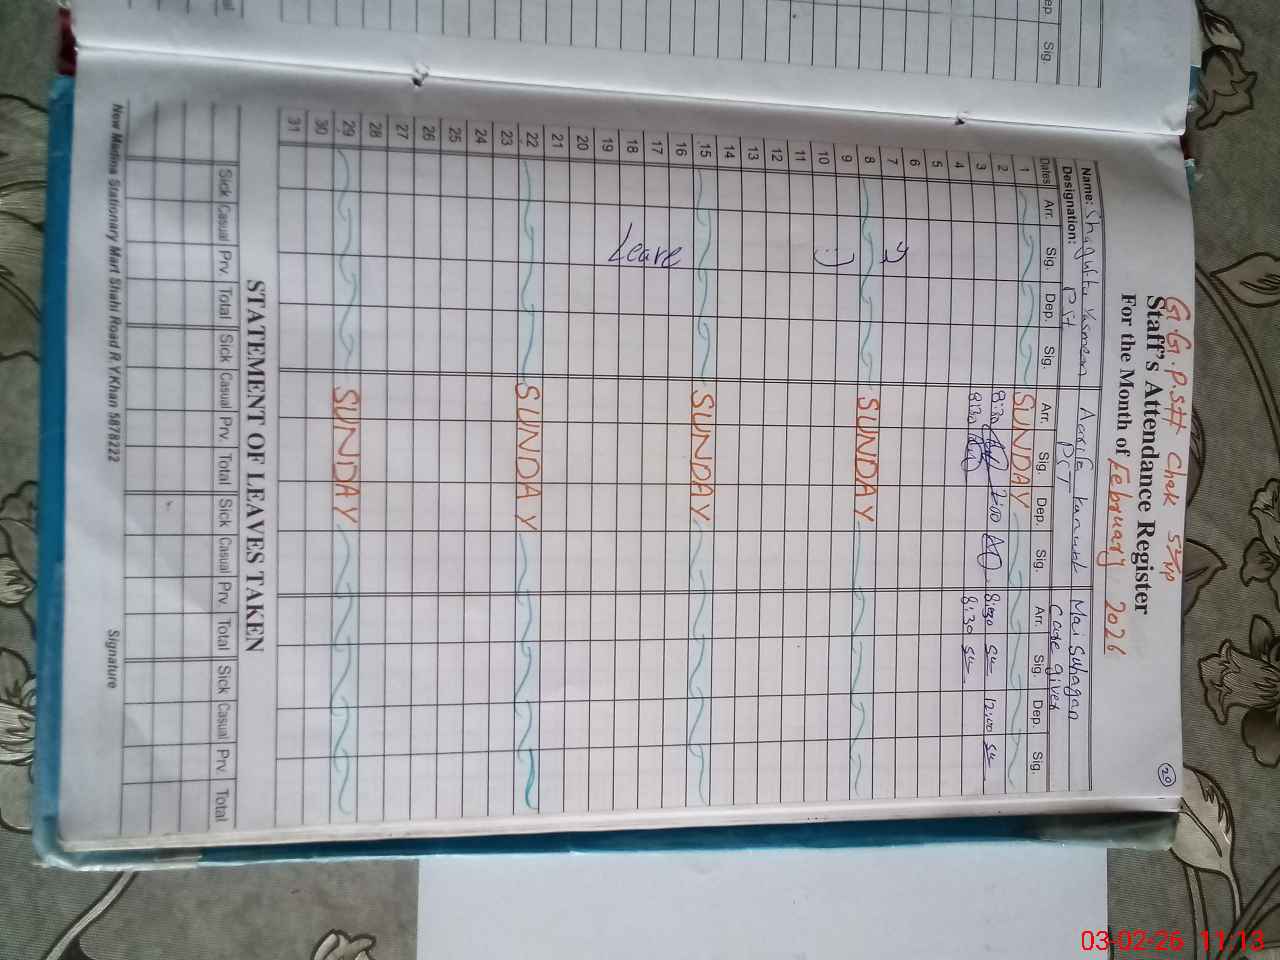 20
G.G.P.S# Chak 57/NP
Staff's Attendance Register
For the Month of February 2026
Name: Shagufta Yasmeen
Mai Suhagan
Designation: PST PST Care giver
Dates Arr. Sig. Dep. Sig. Arr. Sig. Dep. Sig. Arr. Sig. Dep. Sig.
1 SUNDAY
2 8:30 2:00 8:30 12:00
3 8:30 8:30
4
5
6
7
8 SUNDAY
9
10
11
12
13
14
15 SUNDAY
16
17
18 Leave
19
20
21
22 SUNDAY
23
24
25
26
27
28
29 SUNDAY
30
31
STATEMENT OF LEAVES TAKEN
Sick Casual Prv. Total Sick Casual Prv. Total Sick Casual Prv. Total Sick Casual Prv. Total
New Madina Stationary Mart Shahi Road R.Y.Khan 5878222
Signature
ep. Sig.
03-02-26 11:13